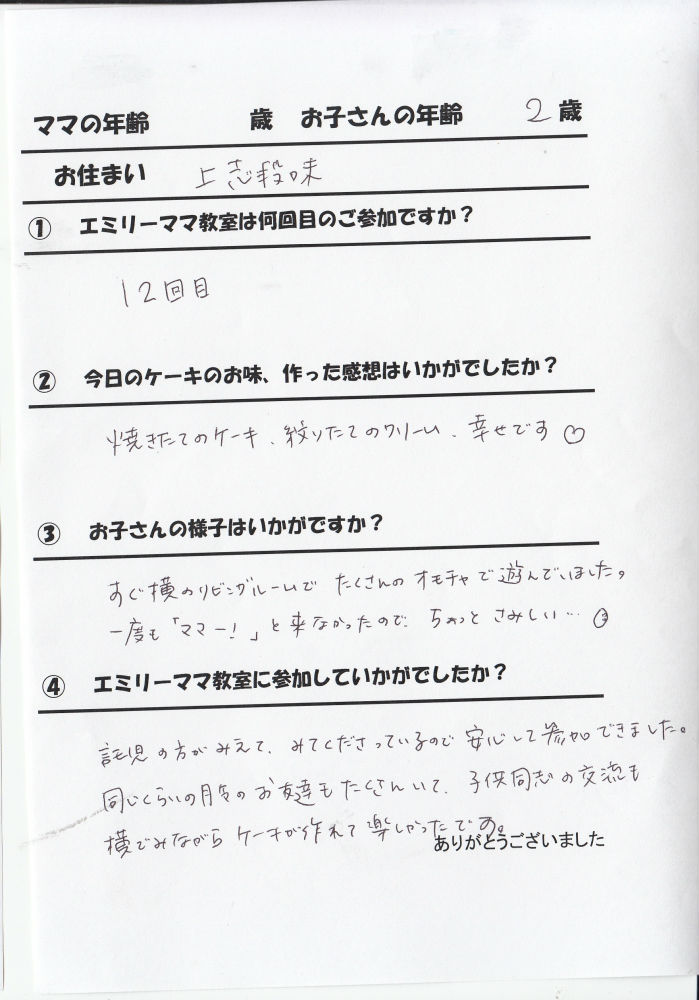 ママの年齢　　　歳　お子さんの年齢　2歳
お住まい　上志段味
① エミリーママ教室は何回目のご参加ですか？
12回目
② 今日のケーキのお味、作った感想はいかがでしたか？
焼きたてのケーキ、絞りたてのクリーム、幸せです♡
③ お子さんの様子はいかがですか？
すぐ横のリビングルームで たくさんの オモチャで遊んでいました。
一度も「ママー！」と来なかったので ちょっと さみしい…
④ エミリーママ教室に参加していかがでしたか？
託児の方がみえて、みてくださっているので安心して参加できました。
同じくらいの月令のお友達もたくさんいて、子供同志の交流も
横でみながら ケーキが作れて楽しかったです。
ありがとうございました